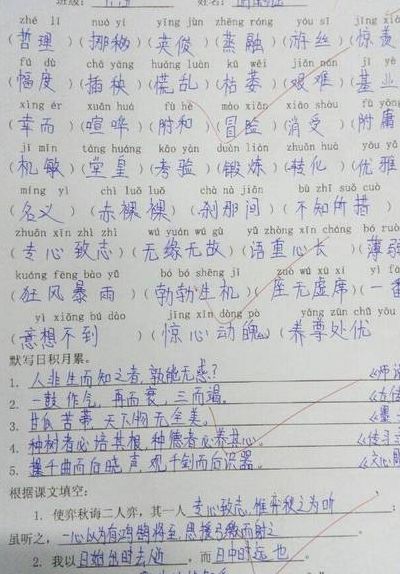 班级: 姓名:
zhé lǐ nuó yí yīng jùn zhēng róng yóu sī jīng xiàn
(哲理)(挪移)(英俊)(蒸融)(游丝)(惊羡
fú dù chā yāng huāng luàn kū wěi jiān nán jī yè
(幅度)(插秧)(慌乱)(枯萎)(艰难)(基业
xìng ér xuān huá fù hè mào xiǎn xiāo shòu fù yōng
(幸而)(喧哗)(附和)(冒险)(消受)(附庸
jī mǐn táng huáng kǎo yàn duàn liàn zhuǎn huà yōu yǎ
(机敏)(堂皇)(考验)(锻炼)(转化)(优雅
míng yì chì luǒ luǒ chà nà jiān bù zhī suǒ cuò
(名义)(赤裸裸)(刹那间)(不知所措)
zhuān xīn zhì zhì wú yuán wú gù yǔ zhòng xīn cháng bó ruò
(专心致志)(无缘无故)(语重心长)(薄弱
kuáng fēng bào yǔ bó bó shēng jī zuò wú xū xí yì fān
(狂风暴雨)(勃勃生机)(座无虚席)(一番
yì xiǎng bú dào jīng xīn dòng pò yǎng zūn chǔ yōu
(意想不到)(惊心动魄)(养尊处优
默写日积月累。
1. 人非生而知之者,孰能无惑? 《师说
2. 一鼓作气,再而衰,三而竭。 《左传
3. 甘瓜苦蒂,天下物无全美。 《墨
4. 种树者必培其根,种德者必养其心。 《传习
5. 操千曲而后晓声,观千剑而后识器。 《文心雕
根据课文填空:
1. 使弈秋诲二人弈,其一人专心致志,惟弈秋之为听;
虽听之,一心以为有鸿鹄将至,思援弓缴而射之。
2. 我以日始出时去人近,而日中时远也。